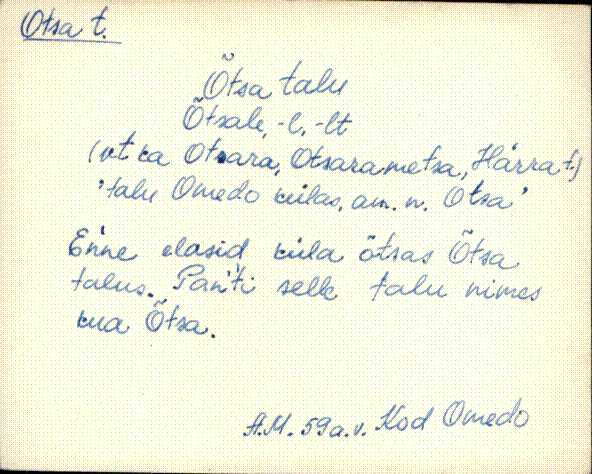 Otsa t.
Õtsa talu
Õtsale, -l, -lt
(vt ka Otsara, Otsarametsa, Härra t.)
'talu Omedo külas, am. n. Otsa'
Enne elasid küla õtsas Õtsa
talus. Pan'ti selle talu nimes
kua Õtsa.
A.M. 59 a.v. Kod Omedo